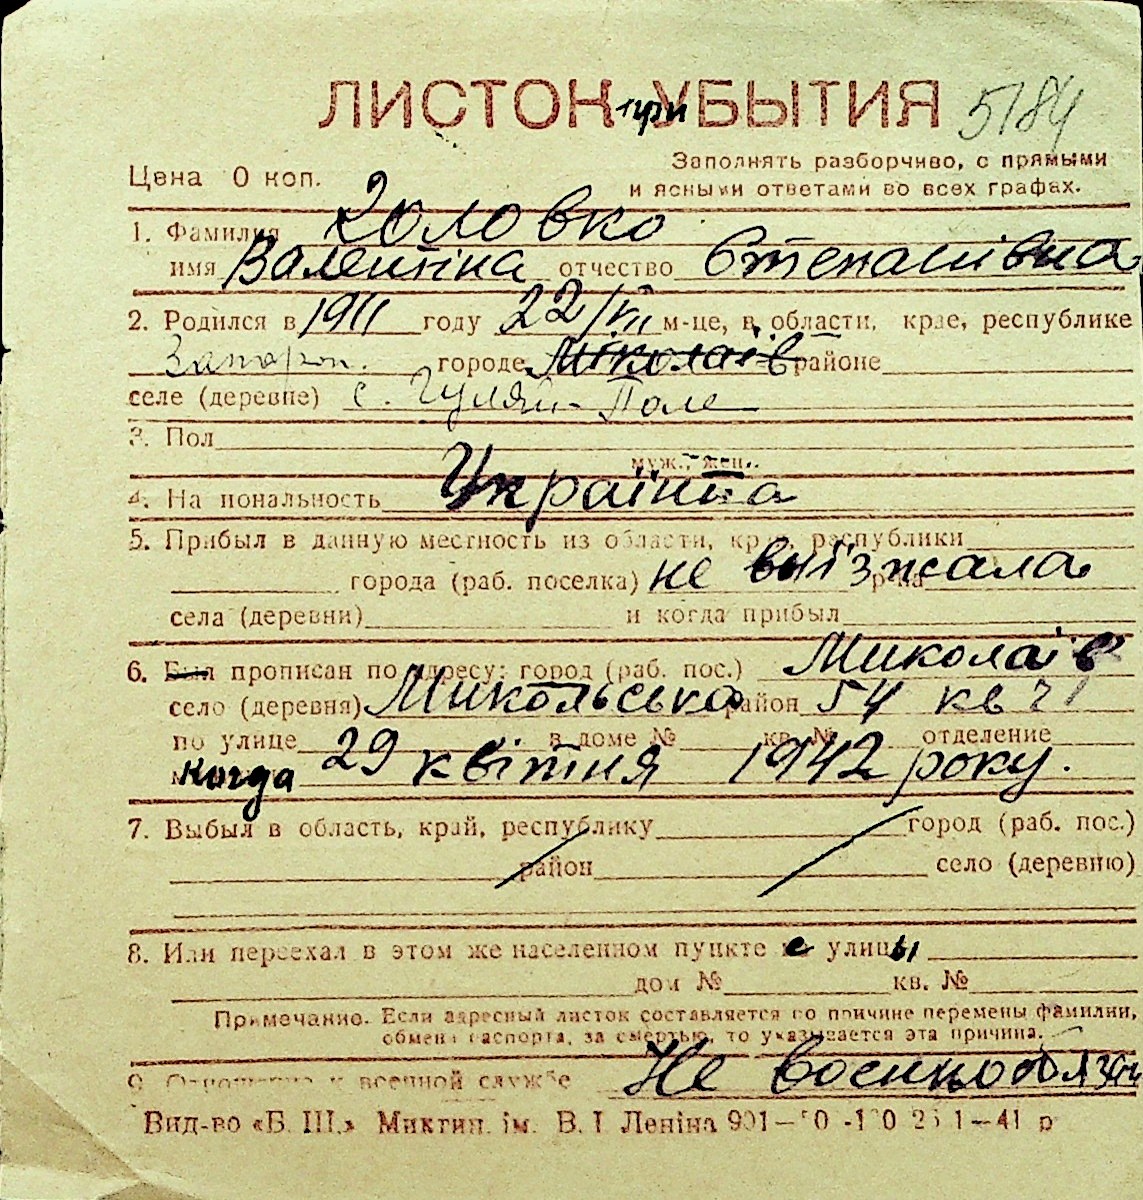 ЛИСТОК при УБЫТИЯ 5184
Заполнять разборчиво, с прямыми
Цена 0 коп. и ясными ответами во всех графах.
1. Фамилия Головко
имя Валентіна отчество Степанівна
2. Родился в 1911 году 22/VII м-це, в области, крае, республике
Запорож. городе Міколаів районе
селе (деревне) с. Гуляй-Поле
3. Пол
муж., жен.
4. Национальность Українка
5. Прибыл в данную местность из области, края, республики
города (раб. поселка) не виїзжала р-на
села (деревни) и когда прибыл
6. Был прописан по адресу: город (раб. пос.) Миколаїв
село (деревня) Микольська район 54 кв 21
по улице в доме № кв. № отделение
Когда 29 квітня 1942 року.
7. Выбыл в область, край, республику город (раб. пос.)
район село (деревню)
8. Или переехал в этом же населенном пункте с улицы
дом № кв. №
Примечание. Если адресный листок составляется по причине перемены фамилии,
обмена паспорта, за смертью, то указывается эта причина.
9. Отношение к военной службе Не военнообязан
Вид-во «Б. Ш.» Миктип. ім. В. І Леніна 1—41 р